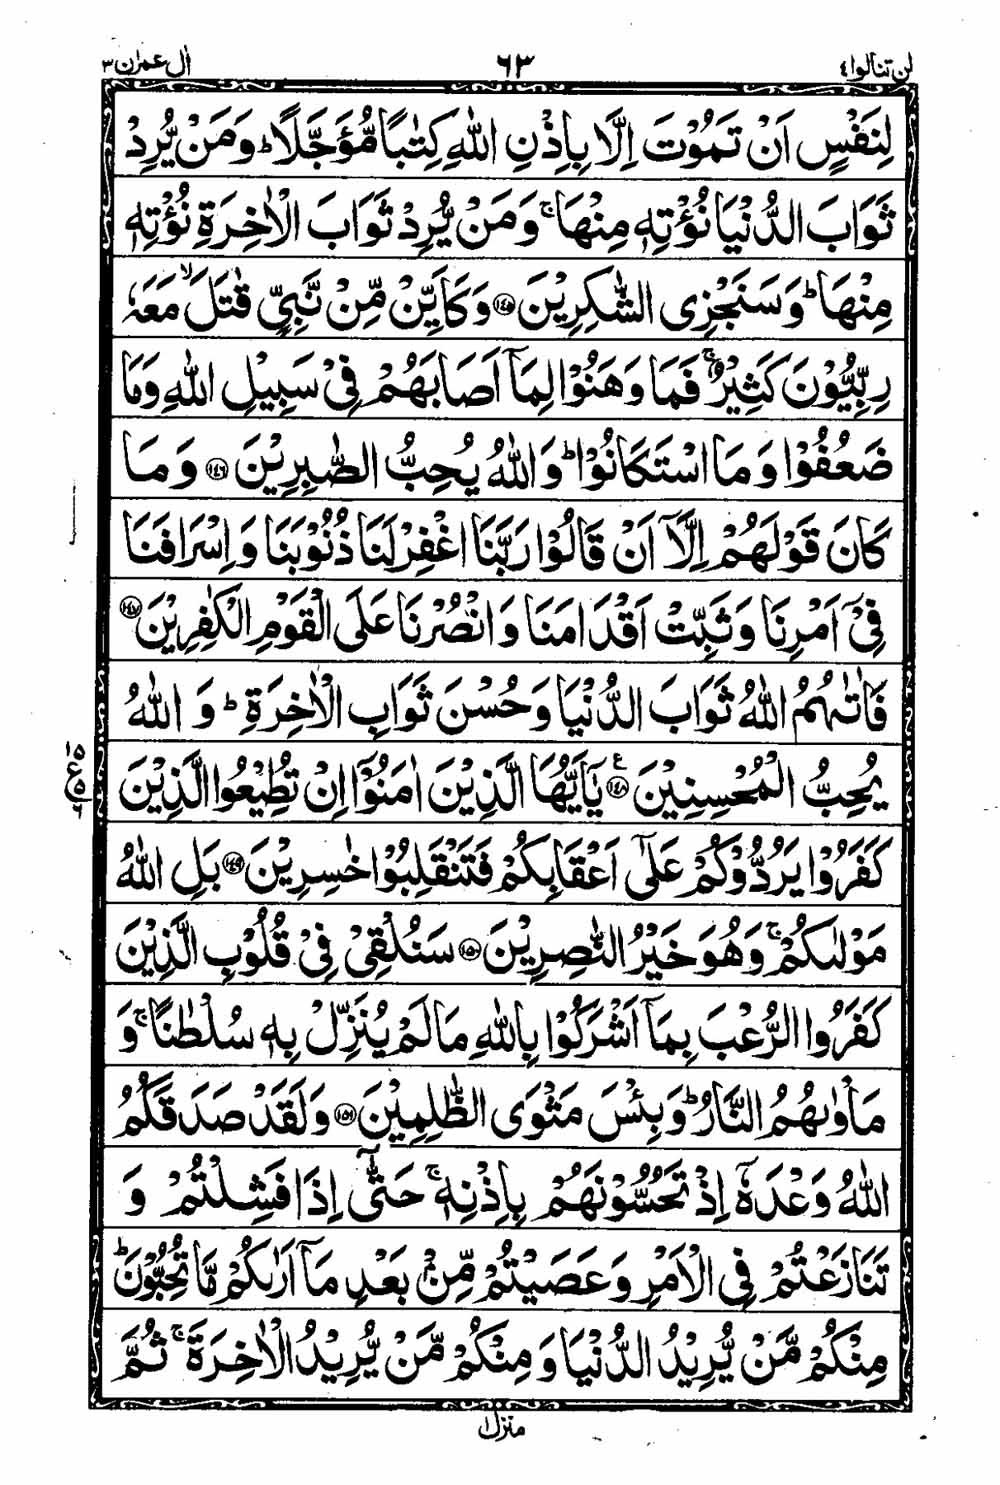 لن تنالوا ٤ ٦٣ اٰل عمرٰن ٣
لِنَفْسٍ اَنْ تَمُوْتَ اِلَّا بِاِذْنِ اللّٰهِ كِتٰبًا مُّؤَجَّلًا ؕ وَمَنْ يُّرِدْ
ثَوَابَ الدُّنْيَا نُؤْتِهٖ مِنْهَا ۚ وَمَنْ يُّرِدْ ثَوَابَ الْاٰخِرَةِ نُؤْتِهٖ
مِنْهَا ؕ وَسَنَجْزِی الشّٰكِرِيْنَ ۝١٤٥ وَكَاَيِّنْ مِّنْ نَّبِیٍّ قٰتَلَ ۙ مَعَهٗ
رِبِّيُّوْنَ كَثِيْرٌ ۚ فَمَا وَهَنُوْا لِمَاۤ اَصَابَهُمْ فِیْ سَبِيْلِ اللّٰهِ وَمَا
ضَعُفُوْا وَمَا اسْتَكَانُوْا ؕ وَاللّٰهُ يُحِبُّ الصّٰبِرِيْنَ ۝١٤٦ وَمَا
كَانَ قَوْلَهُمْ اِلَّاۤ اَنْ قَالُوْا رَبَّنَا اغْفِرْ لَنَا ذُنُوْبَنَا وَاِسْرَافَنَا
فِیْۤ اَمْرِنَا وَثَبِّتْ اَقْدَامَنَا وَانْصُرْنَا عَلَی الْقَوْمِ الْكٰفِرِيْنَ ۝١٤٧
فَاٰتٰىهُمُ اللّٰهُ ثَوَابَ الدُّنْيَا وَحُسْنَ ثَوَابِ الْاٰخِرَةِ ؕ وَاللّٰهُ
يُحِبُّ الْمُحْسِنِيْنَ ۝١٤٨ ع يٰۤاَيُّهَا الَّذِيْنَ اٰمَنُوْۤا اِنْ تُطِيْعُوا الَّذِيْنَ
١٥ ع ٥ ٦
كَفَرُوْا يَرُدُّوْكُمْ عَلٰۤی اَعْقَابِكُمْ فَتَنْقَلِبُوْا خٰسِرِيْنَ ۝١٤٩ بَلِ اللّٰهُ
مَوْلٰىكُمْ ۚ وَهُوَ خَيْرُ النّٰصِرِيْنَ ۝١٥٠ سَنُلْقِیْ فِیْ قُلُوْبِ الَّذِيْنَ
كَفَرُوا الرُّعْبَ بِمَاۤ اَشْرَكُوْا بِاللّٰهِ مَا لَمْ يُنَزِّلْ بِهٖ سُلْطٰنًا ۚ وَ
مَاْوٰىهُمُ النَّارُ ؕ وَبِئْسَ مَثْوَی الظّٰلِمِيْنَ ۝١٥١ وَلَقَدْ صَدَقَكُمُ
اللّٰهُ وَعْدَهٗۤ اِذْ تَحُسُّوْنَهُمْ بِاِذْنِهٖ ۚ حَتّٰۤی اِذَا فَشِلْتُمْ وَ
تَنَازَعْتُمْ فِی الْاَمْرِ وَعَصَيْتُمْ مِّنْۢ بَعْدِ مَاۤ اَرٰىكُمْ مَّا تُحِبُّوْنَ ؕ
مِنْكُمْ مَّنْ يُّرِيْدُ الدُّنْيَا وَمِنْكُمْ مَّنْ يُّرِيْدُ الْاٰخِرَةَ ۚ ثُمَّ
منزل ١